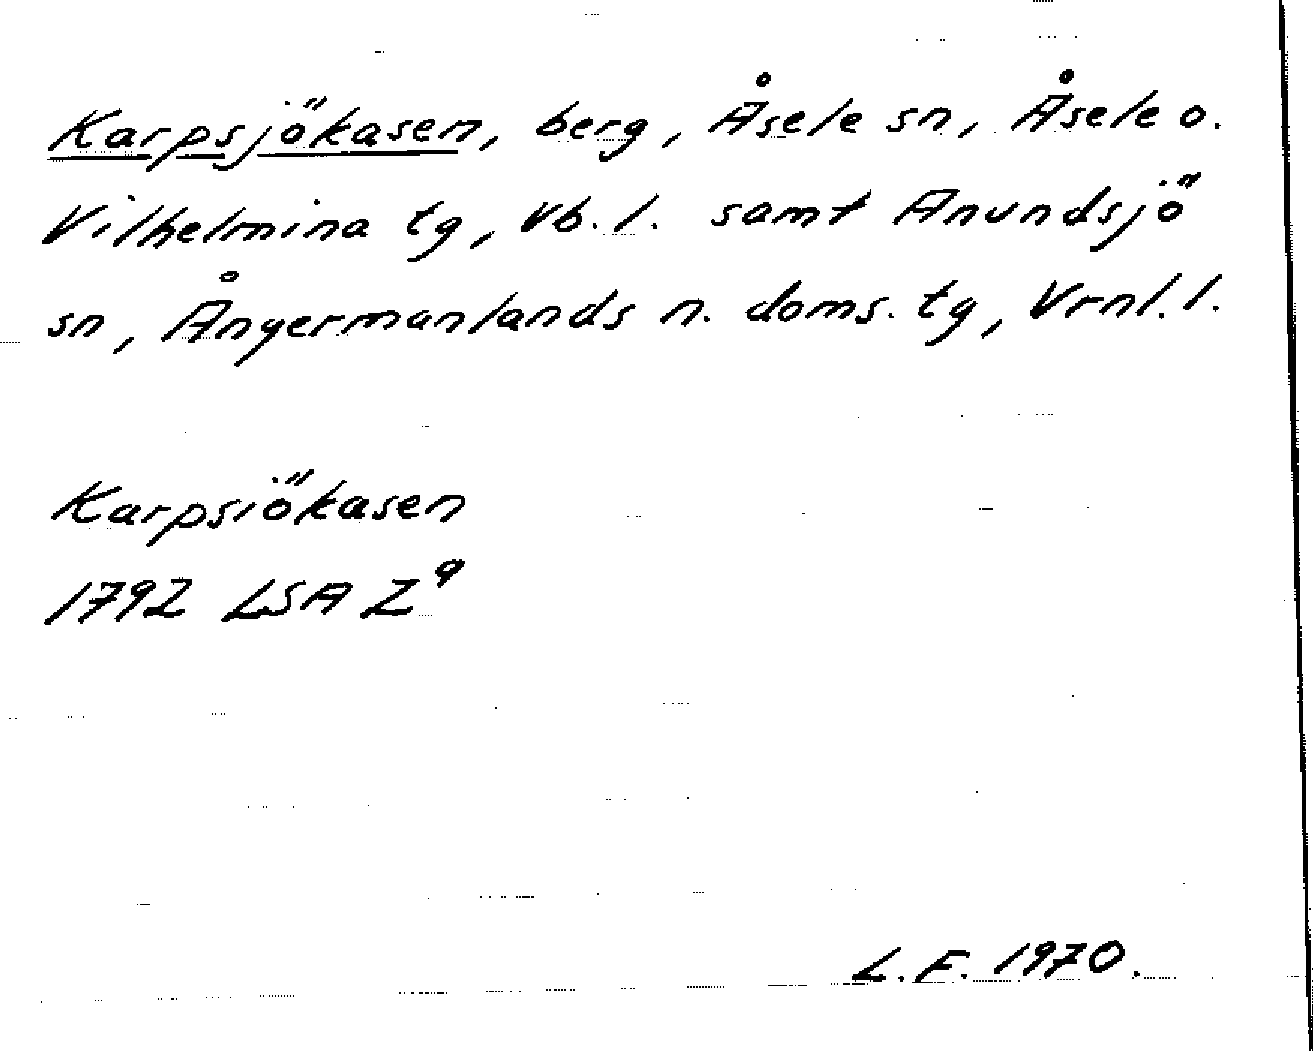 Karpsjökasen, berg, Åsele sn, Åsele o.
Vilhelmina tg, Vb. l. samt Anundsjö
sn, Ångermanlands n. doms. tg, Vrnl. l.
Karpsiökasen
1792 LSA Z⁹
L. F. 1970.